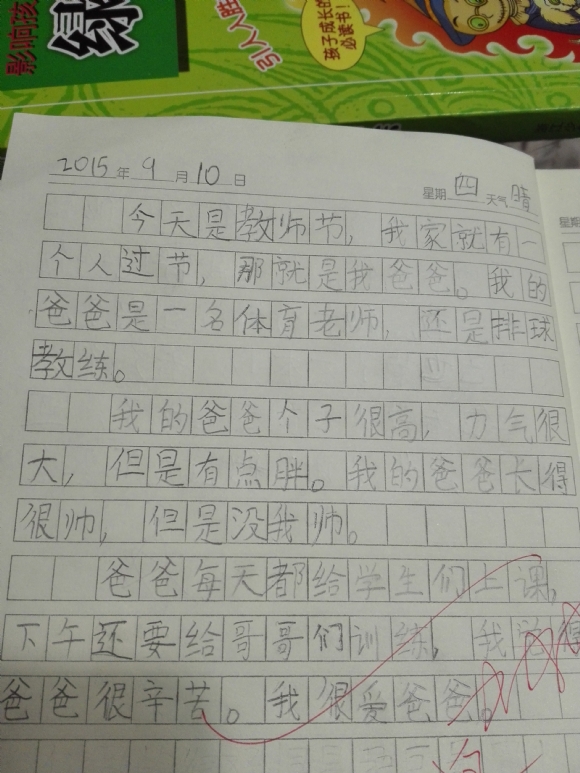 影响孩
绿
引人入胜
孩子成长的
必读书!
2015年9月10日 星期四 天气晴
星期
今天是教师节, 我家就有一
个人过节, 那就是我爸爸。我的
爸爸是一名体育老师, 还是排球
教练。
我的爸爸个子很高, 力气很
大, 但是有点胖。我的爸爸长得
很帅, 但是没我帅。
爸爸每天都给学生们上课,
下午还要给哥哥们训练, 我
爸爸很辛苦。我很爱爸爸。